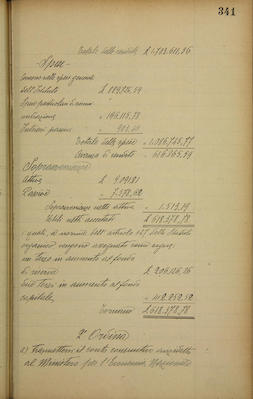 341
Totale delle rendite £ 1.703.611,36
- Spese -
Concorso nelle spese generali
dell'Istituto £ 889.726,59
Spese particolari di ammi-
nistrazione
Interessi passivi
Totale delle spese
Avanzo di rendite
Sopravvenienze
Attive £
Passive
Sopravvenienze nette attive
Utili nette accertati £ 618.378,78
i quali, a norma dell'articolo dello Statuto
organico vengono assegnati come segue:
un terzo in aumento al fondo
di riserva £ 206.126,26
due terzi in aumento al fondo
capitale, " 412.252,52
Tornano £ 618.378,78
2° Ordina
a) trasmettersi il conto consuntivo suddetto
al Ministero per l'Economia Nazionale